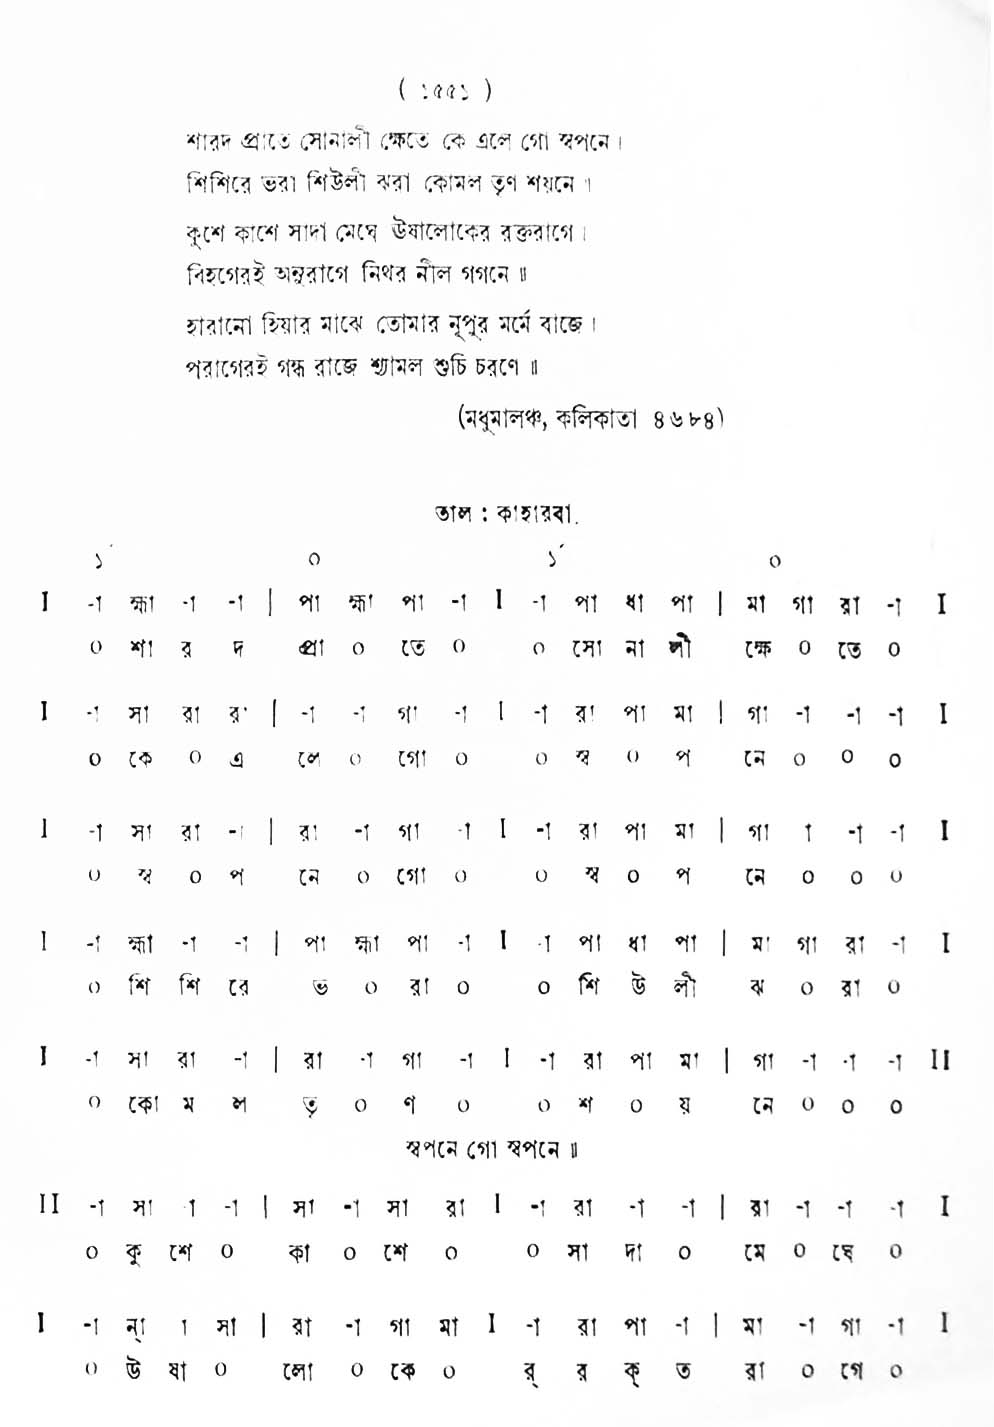 ( ১৫৫১ )
শারদ প্রাতে সোনালী ক্ষেতে কে এলে গো স্বপনে।
শিশিরে ভরা শিউলী ঝরা কোমল তৃণ শয়নে।
কুশে কাশে সাদা মেঘে ঊষালোকের রক্তরাগে।
বিহগেরই অনুরাগে নিথর নীল গগনে॥
হারানো হিয়ার মাঝে তোমার নূপুর মর্মে বাজে।
পরাগেরই গন্ধ রাজে শ্যামল শুচি চরণে॥
(মধুমালঞ্চ, কলিকাতা ৪৬৮৪)
তাল : কাহারবা.
১´ ০ ১´ ০
I -া হ্মা -া -া | পা হ্মা পা -া I -া পা ধা পা | মা গা রা -া I
০ শা র দ প্রা ০ তে ০ ০ সো না লী ক্ষে ০ তে ০
I -া সা রা রা | -া -া গা -া I -া রা পা মা | গা -া -া -া I
০ কে ০ এ লে ০ গো ০ ০ স্ব ০ প নে ০ ০ ০
I -া সা রা -া | রা -া গা -া I -া রা পা মা | গা া -া -া I
০ স্ব ০ প নে ০ গো ০ ০ স্ব ০ প নে ০ ০ ০
I -া হ্মা -া -া | পা হ্মা পা -া I -া পা ধা পা | মা গা রা -া I
০ শি শি রে ভ ০ রা ০ ০ শি উ লী ঝ ০ রা ০
I -া সা রা -া | রা -া গা -া I -া রা পা মা | গা -া -া -া II
০ কো ম ল তৃ ০ ণ ০ ০ শ ০ য় নে ০ ০ ০
স্বপনে গো স্বপনে॥
II -া সা া -া | সা -া সা রা I -া রা -া -া | রা -া -া -া I
০ কু শে ০ কা ০ শে ০ ০ সা দা ০ মে ০ ঘে ০
I -া ন্া া সা | রা -া গা মা I -া রা পা -া | মা -া গা -া I
০ উ ষা ০ লো ০ কে ০ র্ র ক্ ত রা ০ গে ০